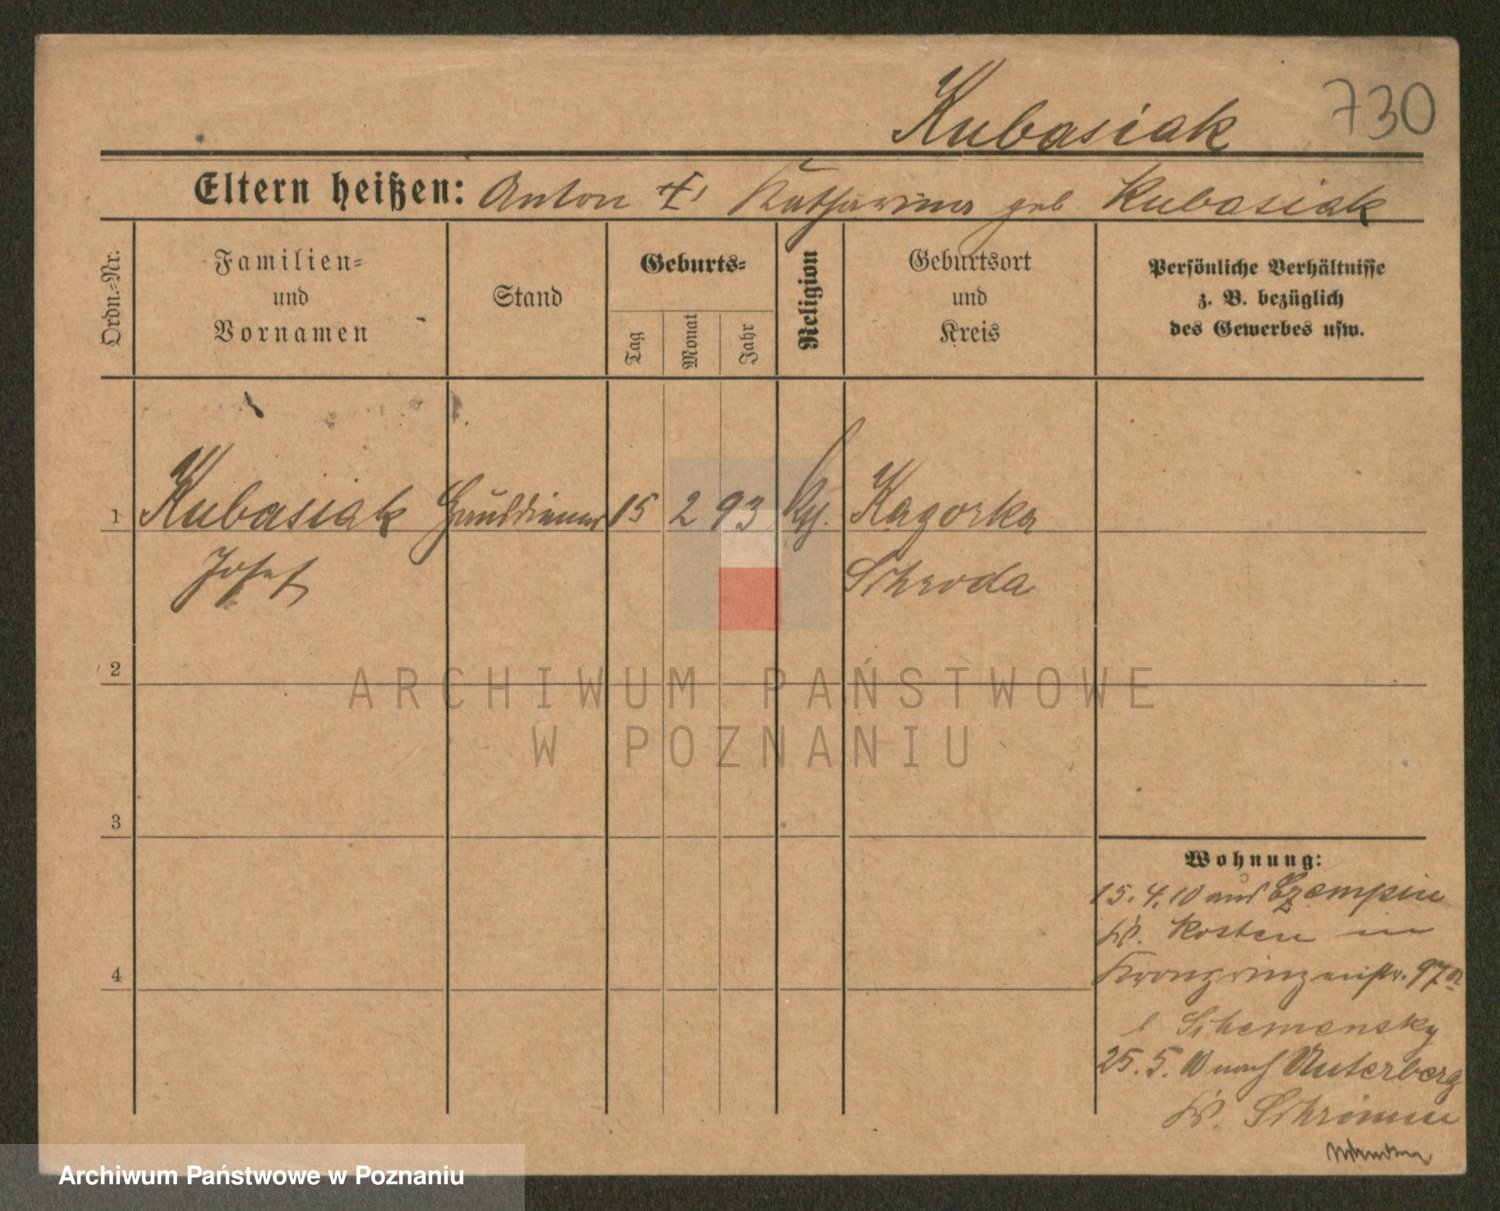 Kubasiak 730
Eltern heißen: Anton † Katharina geb. Kubasiak
Ordn.-Nr.
Familien-
und
Vornamen
Stand
Geburts-
Tag
Monat
Jahr
Religion
Geburtsort
und
Kreis
Persönliche Verhältnisse
z. B. bezüglich
des Gewerbes usw.
1 Kubasiak Hausdiener 15 2 93 Kagorka
Josef Schroda
2
3
4
Wohnung:
15.4.10 aus Czempin
Kr. Kosten in
Kronprinzenstr. 97a
b Schemensky
25.5.10 nach Unterberg
Kr. Schrimm
ARCHIWUM PAŃSTWOWE
W POZNANIU
Archiwum Państwowe w Poznaniu